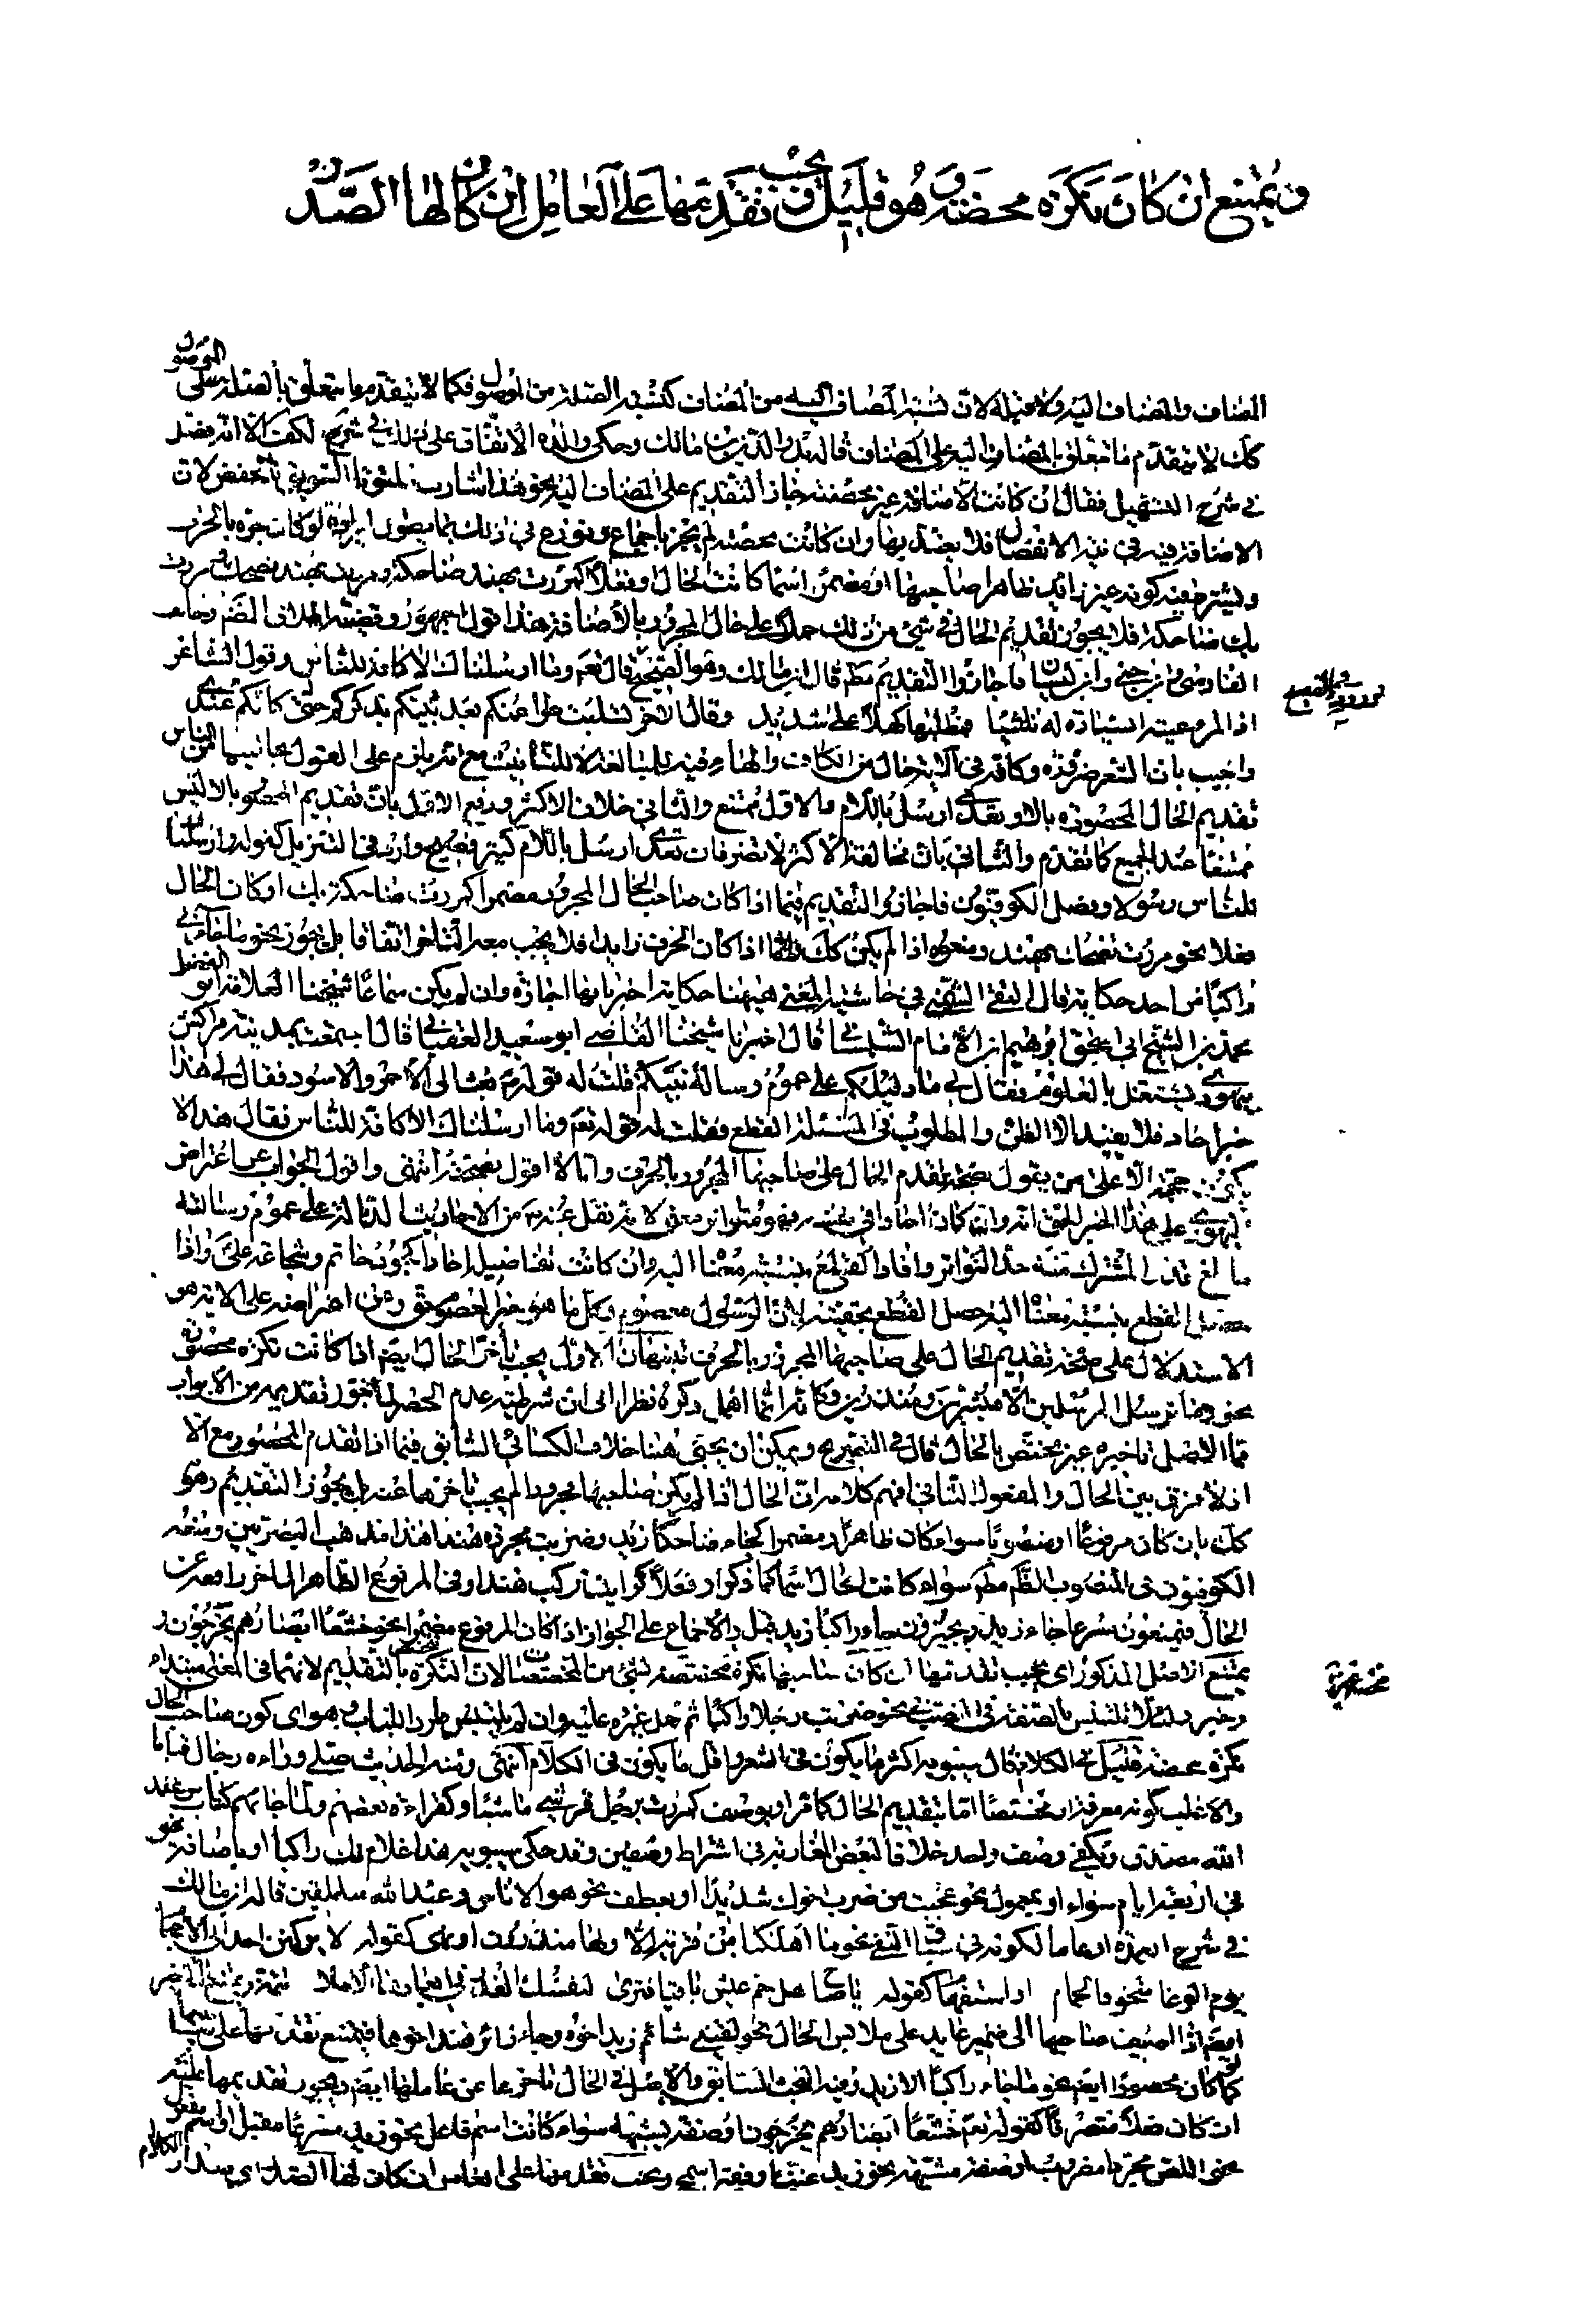 ويمتنع ان كان نكرة محضة وهو قليل ويجب تقديمها على العامل ان كان لها الصدر
المضاف والمضاف اليه ولا قبله لان نسبة المضاف اليه من المضاف كنسبة الصلة من الموصول فكما لا يتقدم ما يتعلق بالصلة على الموصول
كك لا يتقدم ما تعلق بالمضاف اليه على المضاف قاله بدر الدين بن مالك وحكى والده الاتفاق على ذلك في شرح لكفت الا انه فصل
في شرح التسهيل فقال ان كانت الاضافة غير محضة جاز التقديم على المضاف اليه نحو هذا شارب السويق لان
الاضافة فيه في نية الانفصال فلا يعتد بها وان كانت محضة لم يجز باجماع ونوزع في ذلك بما يطول ايراده لو كان جره بالحرف
ويشترط فيه كونه غير زايد ظاهرا صاحبها او مضمرا اسما كانت الحال او فعلا كمررت بهند ضاحكة ومررت بهند تضحك ومررت
بك ضاحكة فلا يجوز تقديم الحال في شئ من ذلك حملا على حال المجرور بالاضافة هذا قول الجمهور
الفارسي وابن جني وابن كيسان فاجازوا التقديم مطم قال ابن مالك وهو الصحيح قال تعم وما ارسلناك الا كافة للناس وقول الشاعر
اذا المرء اعيته السيادة ناشيا فمطلبها كهلا عليه شديد وقال الآخر تسليت طرا عنكم بعد بينكم بذكركم حتى كانكم عندي
واجيب بان الشعر ضرورة وكافة في الآية حال من الكاف والهاء فيه للمبالغة لا للتأنيث مع انه يلزم على القول بحاليتها من الناس
تقديم الحال المحصورة بالا وتعدى ارسل باللام والاول ممتنع والثاني خلاف الاكثر ودفع الاول بان تقديم المحصور بالا ليس
ممتنعا عند الجميع كما تقدم والثاني بان مخالفة الاكثر لا تضر فان تعدى ارسل باللام كثير فصيح وارد في التنزيل كقوله وارسلناك
للناس رسولا وفصل الكوفيون فاجازوا التقديم فيما اذا كان صاحب الحال المجرور مضمرا كمررت ضاحكة بك او كان الحال
فعلا نحو مررت تضحك بهند ومنعوه اذا لم يكن كك اما اذا كان الحرف زايدا فلا يجب معه التاخر اتفاقا بل يجوز نحو ما جاءني
راكبا من احد حكاية قال التقي الشمني في حاشية المغني هيهنا حكاية اخبرنا بها اجازة وان لم يكن سماعا شيخنا العلامة ابو الفضل
محمد بن الشيخ ابي اسحق ابرهيم ابن الامام التلمساني قال اخبرنا شيخنا القاضي ابو سعيد العقباني قال سمعت بمدينة مراكش
يهودي يشتغل بالعلوم فقال لي ما دليلكم على عموم رسالة نبيكم قلت له قوله بعثت الى الاحمر والاسود فقال لي هذا
خبر احاد فلا يفيد الا الظن والمطلوب في المسئلة القطع فقلت له قوله تعم وما ارسلناك الا كافة للناس فقال هذا لا
يكون حجة الا على من يقول بصحة تقدم الحال على صاحبها المجرور بالحرف وانا لا اقول بصحته انتهى واقول الجواب عن اعتراض
اليهودي على هذا الخبر للحق انه وان كان احادا في نفسه فهو متواتر معنى لانه نقل عنه من الاحاديث الدالة على عموم رسالته
ما بلغ قدر المشترك منه حد التواتر وافاد القطع بنسبته معنا اليه وان كانت تفاصيل احادا كجود حاتم وشجاعة علي واذا
حصل القطع بنسبته معنا اليه حصل القطع بحقيته لان الرسول معصوم وكل ما هو خبر المعصوم حق من اعتراضه على الآية هو
الاستدلال على صحة تقديم الحال على صاحبها المجرور بالحرف تنبيهان الاول يجب تاخر الحال ايضم اذا كانت نكرة محصورة
نحو وما نرسل المرسلين الا مبشرين ومنذرين وكانه انما اهمل ذكره نظرا الى ان شرطية عدم الحصر لجواز تقديمه من الابواب
مما الاصل تاخيره غير مختص بالحال قال في التصريح ويمكن ان يجئ هنا خلاف الكسائي السابق فيما اذا تقدم المحصور مع الا
اذ لا فرق بين الحال والمفعول الثاني افهم كلامه ان الحال اذا لم يكن صاحبها مجرورا لم يجب تاخرها عنه بل يجوز التقديم وهو
كك بان كان مرفوعا او منصوبا سواء كان ظاهرا او مضمرا كجاء ضاحكا زيد وضربت مجردة هندا هذا مذهب البصريين ومنعه
الكوفيون في المنصوب الظم مطم سواء كانت الحال اسما كما ذكر او فعلا كرايت تركب هندا وفي المرفوع الظاهر الماخر رافعه عن
الحال فيمنعون مسرعا جاء زيد ويجيزون جاء راكبا زيد قيل والاجماع على الجواز اذا كان المرفوع مضمرا نحو خشعا ابصارهم يخرجون و
يمتنع الاصل المذكور اي يجب تقدمها ان كان صاحبها نكرة محضة لان النكرة بالتقديم لانهما في المعنى مبتداء
وخبر ولئلا تلتبس بالصفة في النصب نحو ضربت رجلا راكبا ثم حمل غيره عليه وان لم يلتبس طردا للباب وهو اي كون صاحب الحال
نكرة محضة قليل في الكلام قال سيبويه اكثر ما يكون في الشعر واقل ما يكون في الكلام انتهى ومنه الحديث صلى وراءه رجال قياما
والاغلب كونه معرفة او مختصا اما بتقديم الحال كما مر او بوصف كمررت برجل قرشي ماشيا وكقراءة بعضهم ولما جاءهم كتاب من عند
الله مصدقا ويكفي وصف واحد خلافا لبعض المغاربة في اشتراط وصفين وقد حكى سيبويه هذا غلام لك راكبا او باضافة نحو
في اربعة ايام سواء او بمعمول نحو عجبت من ضرب اخوك شديدا او بعطف نحو هؤلاء ناس وعبد الله منطلقين قاله ابن مالك
في شرح العمدة او عاما لكونه في سياق النفي نحو وما اهلكنا من قرية الا ولها منذرون او نهي كقوله لا يركنن احد الى الاحجام
يوم الوغا متخوفا لحمام او استفهام كقوله يا صاح هل حم عيش باقيا فترى لنفسك العذر في ابعادها الاملا
ايضم اذا اضيف صاحبها الى ضمير عايد على ملابس الحال نحو لقيني شاتم زيد اخوه وجاء زائر هند اخوها فيمتنع تقديمها على صاحبها
كما لو كان محصورا ايضم نحو ما جاء راكبا الا زيد والاصل في الحال تاخرها عن عاملها ايضم ويجوز تقديمها عليه
ان كان فعلا متصرفا كقوله تعم خشعا ابصارهم يخرجون او صفة تشبهه سواء كانت اسم فاعل نحو زيد مسرعا مقبل او اسم مفعول
نحو اللص مجردا مضروب او صفة مشبهة نحو زيد ويجب تقديمها على العامل ان كان لها الصدر اي صدر الكلام